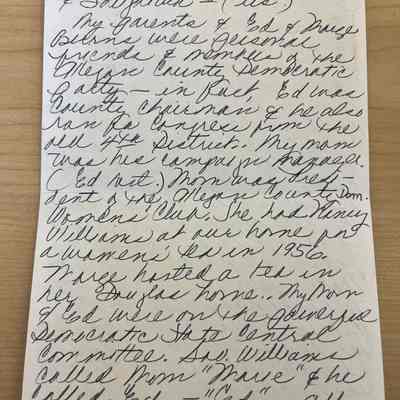 & Saugatuck - (us.)
My parents & Ed & Marge
Burns were personal
friends & members of the
Allegan County Democratic
Party - in fact, Ed was
County Chairman & he also
ran for Congress from the
old 4th District. My mom
was his campaign manager.
(Ed lost.) Mom was Presi-
dent of the Allegan County Dem.
Womens Club. She had Nancy
Williams at our home for
a womens tea in 1956.
Marge hosted a tea in
her Douglas home. My Mom
& Ed were on the powerful
Democratic State Central
Committee. Gov. Williams
called Mom "Marie" & he
called Ed - "Ed"